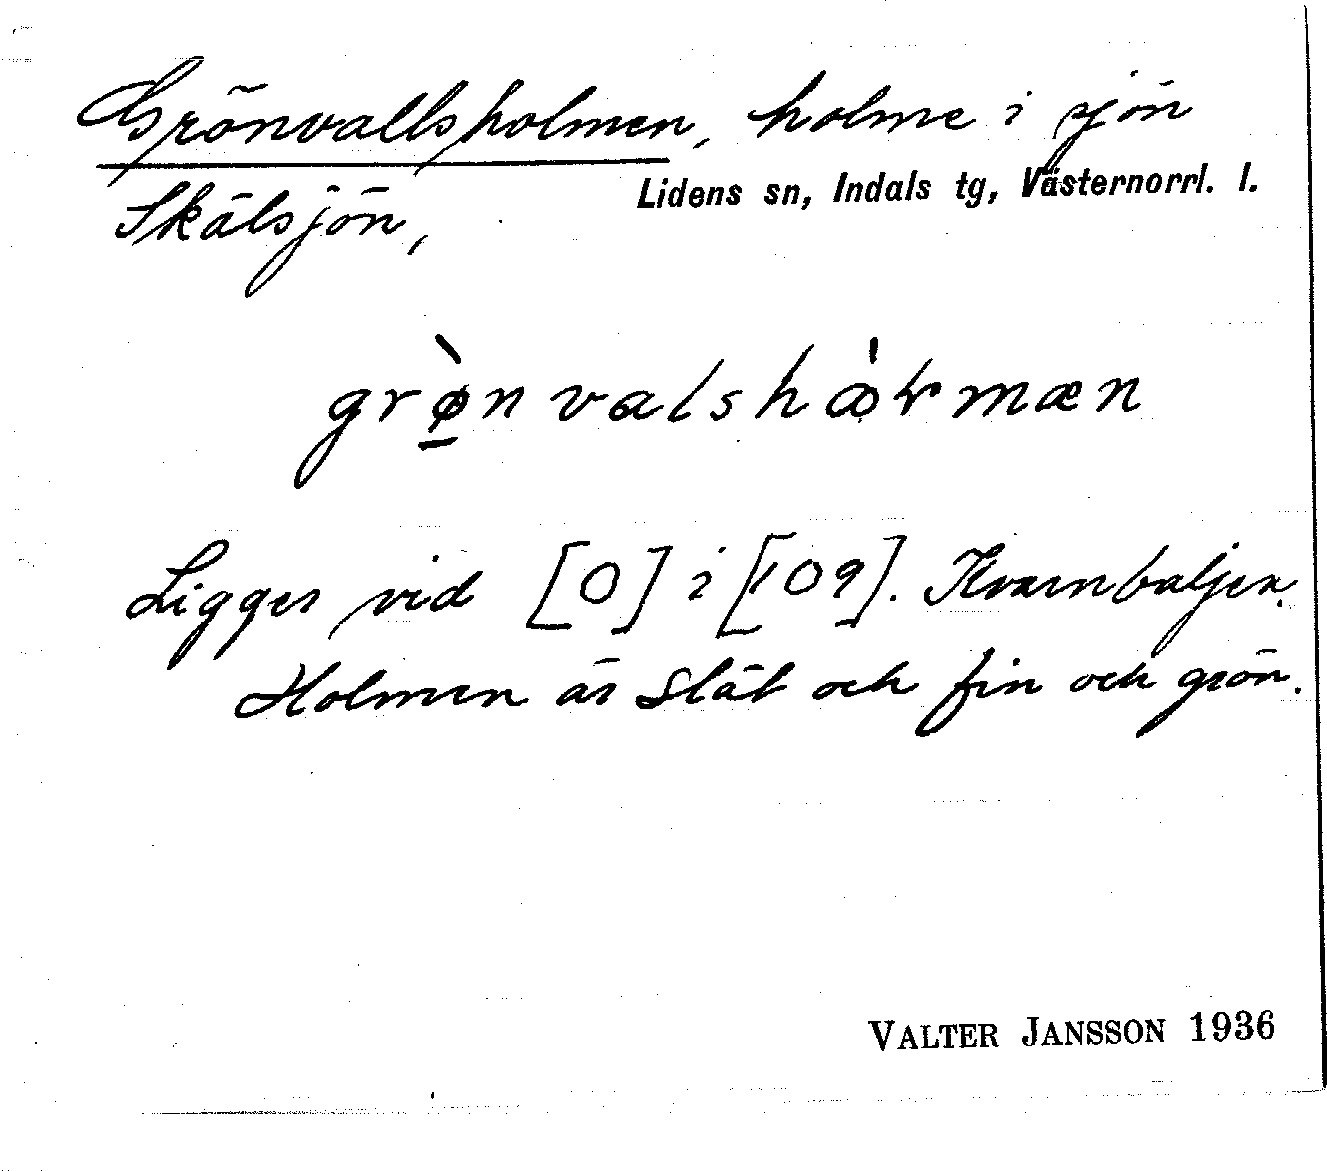 Grönvallsholmen, holme i sjön
Lidens sn, Indals tg, Västernorrl. l.
Skälsjön,
grø̀nvalshàɽmæn
Ligger vid [O] i [109]. Kvarnbaljen.
Holmen är slät och fin och grön.
VALTER JANSSON 1936